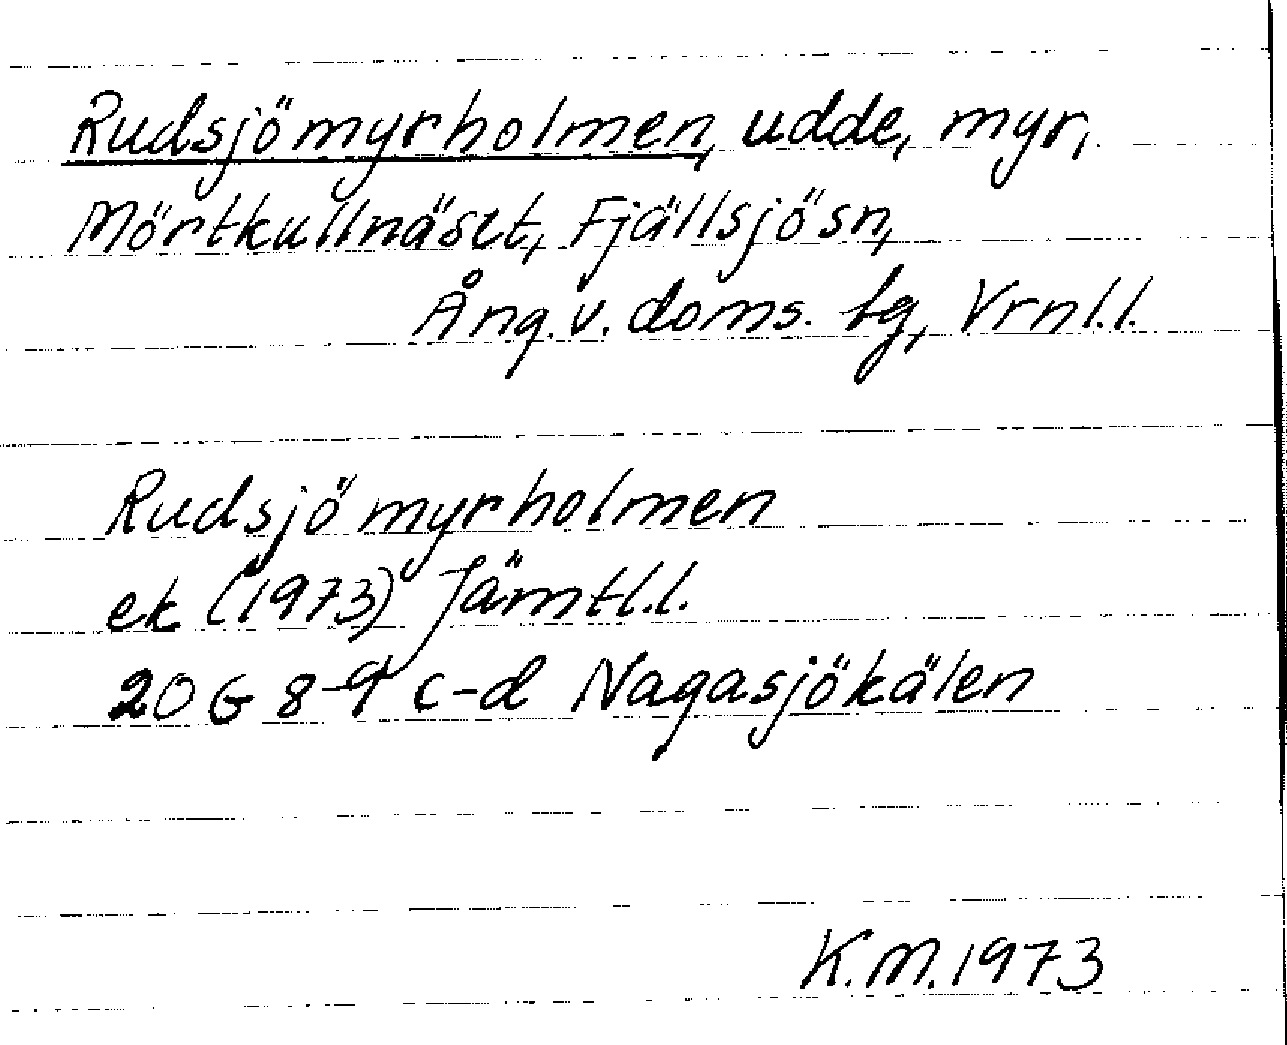 Rudsjömyrholmen, udde, myr,
Mörtkullnäset, Fjällsjösn,
Ång. v. doms. fg, Vrnl.l.
Rudsjömyrholmen
ek (1973) Jämtl.l.
20 G 8-9 c-d Nagasjökälen
K.M. 1973